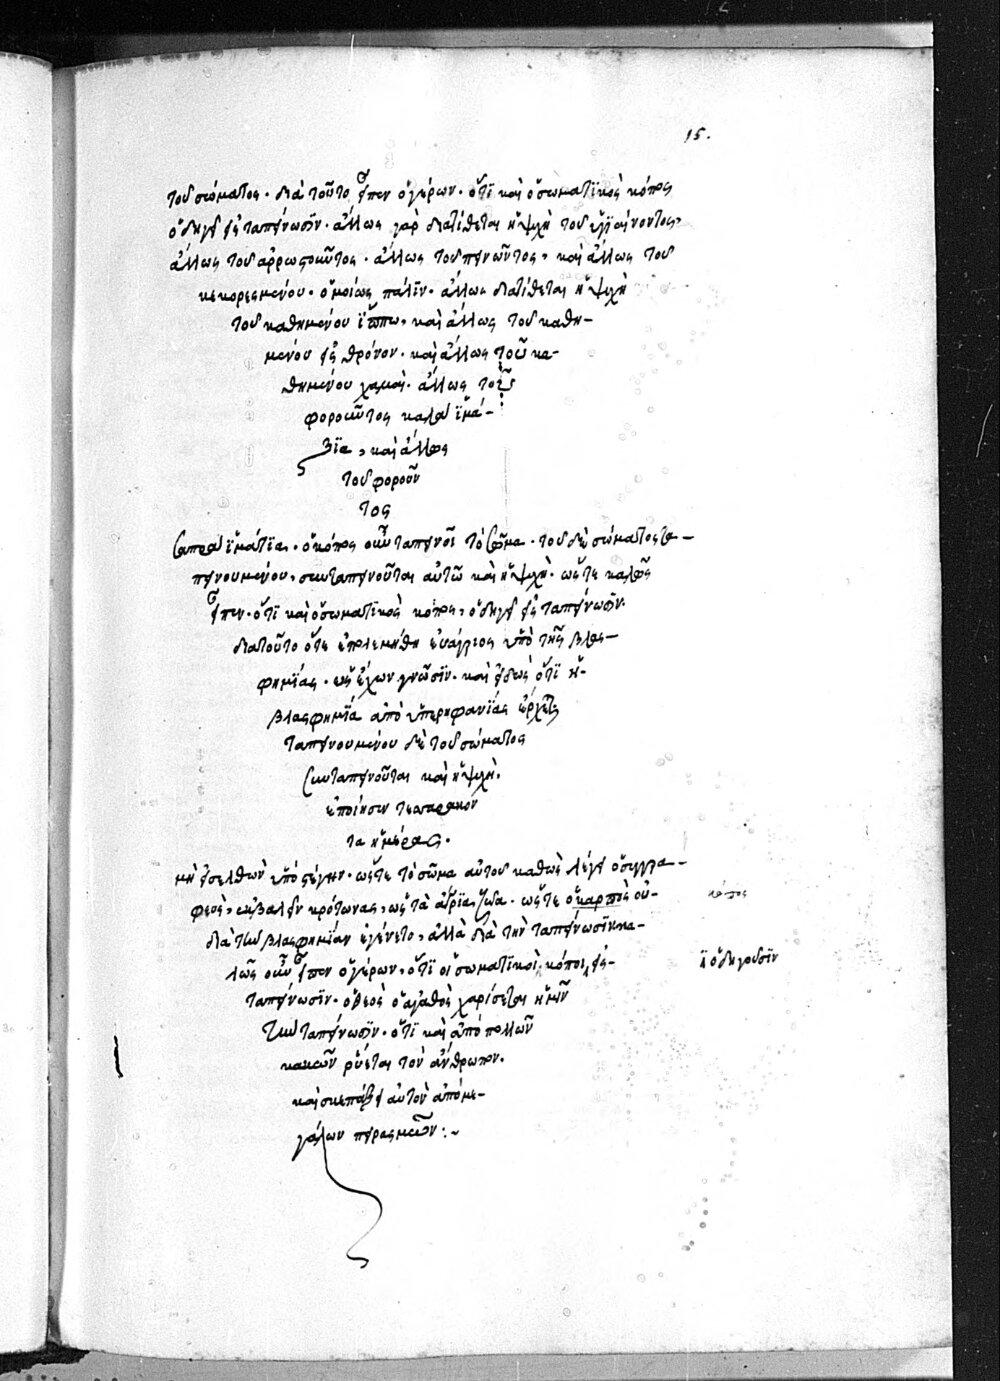 15.
τοῦ σώματος. διὰ τοῦτο εἶπεν ὁ γέρων. ὅτι καὶ ὁ σωματικὸς κόπος
ὁδηγεῖ εἰς ταπείνωσιν. ἄλλως γὰρ διατίθεται ἡ ψυχὴ τοῦ ὑγιαίνοντος,
ἄλλως τοῦ ἀρρωστοῦντος. ἄλλως τοῦ πεινῶντος, καὶ ἄλλως τοῦ
κεκορεσμένου. ὁμοίως πάλιν. ἄλλως διατίθεται ἡ ψυχὴ
τοῦ καθημένου ἵππω, καὶ ἄλλως τοῦ καθη-
μένου εἰς θρόνον. καὶ ἄλλως τοῦ κα-
θημένου χαμαί. ἄλλως τοῦ
φοροῦντος καλὰ ἱμά-
τια, καὶ ἄλλως
τοῦ φοροῦν
τος
σαπρὰ ἱμάτια. ὁ κόπος οὖν ταπεινοῖ τὸ σῶμα. τοῦ δὲ σώματος τα-
πεινουμένου, συνταπεινοῦται αὐτῶ καὶ ἡ ψυχή. ὥστε καλῶς
εἶπεν. ὅτι καὶ ὁ σωματικὸς κόπος, ὁδηγεῖ εἰς ταπείνωσιν.
διατοῦτο ὅτε ἐπολεμήθη εὐάγριος ὑπὸ τῆς βλασ-
φημίας. ὡς ἔχων γνῶσιν. καὶ εἰδὼς ὅτι ἡ
βλασφημία ἀπὸ ὑπερηφανίας ἔρχεται
ταπεινουμένου δὲ τοῦ σώματος
συνταπεινοῦται καὶ ἡ ψυχή.
ἐποίησεν τεσσαράκον
τα ἡμέρας.
μὴ εἰσελθὼν ὑπὸ στέγην. ὥστε τὸ σῶμα αὐτοῦ καθὼς λέγει ὁ συγγρα-
φεὺς, ἐκβαλεῖν κρότωνας, ὡς τὰ ἄγρια ζῶα. ὥστε ὁ καρπὸς οὐ-
διὰ τὴν βλασφημίαν ἐγένετο, ἀλλὰ διὰ τὴν ταπείνωσιν κα-
λῶς οὖν εἶπεν ὁ γέρων, ὅτι οἱ σωματικοὶ κόποι εἰς
ταπείνωσιν. ὁ θεὸς ὁ ἀγαθὸς χαρίσεται ἡμῖν
τὴν ταπείνωσιν. ὅτι καὶ ἀπὸ πολλῶν
κακῶν ῥύεται τὸν ἄνθρωπον.
καὶ σκεπάζει αὐτὸν ἀπὸ με-
γάλων πειρασμῶν:~
κόπος
ὁδηγοῦσιν